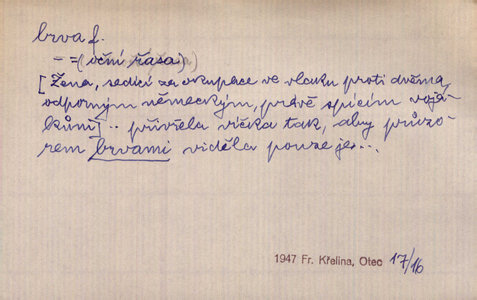 brva f.
– = (oční řasa)
[Žena, sedící za okupace ve vlaku proti dvěma
odporným německým, právě spícím vojá-
kům] .. přivřela víčka tak, aby průzo-
rem brvami viděla pouze je...
1947 Fr. Křelina, Otec 17/16